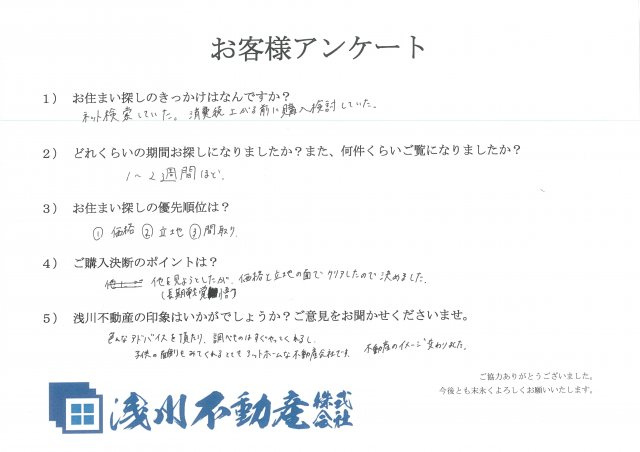 お客様アンケート
1） お住まい探しのきっかけはなんですか？
ネット検索していた。消費税上がる前に購入検討していた。
2） どれくらいの期間お探しになりましたか？また、何件くらいご覧になりましたか？
1～2週間ほど。
3） お住まい探しの優先順位は？
① 価格 ② 立地 ③ 間取り
4） ご購入決断のポイントは？
他を見ようとしたが、価格と立地の面でクリアしたので決めました。
(長期戦覚悟)
5） 浅川不動産の印象はいかがでしょうか？ご意見をお聞かせくださいませ。
色んなアドバイスを頂たり、調べものはすぐやってくれるし、
子供の面倒もみてくれるとてもアットホームな不動産会社です。 不動産のイメージ変わりました。
ご協力ありがとうございました。
今後とも末永くよろしくお願いいたします。
浅川不動産株式会社